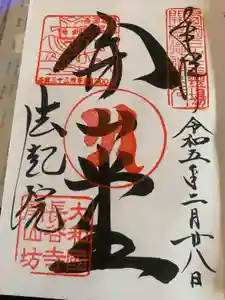 奉拝
令和五年二月廿八日
開山堂
法起院
大和國
長谷寺
開山坊